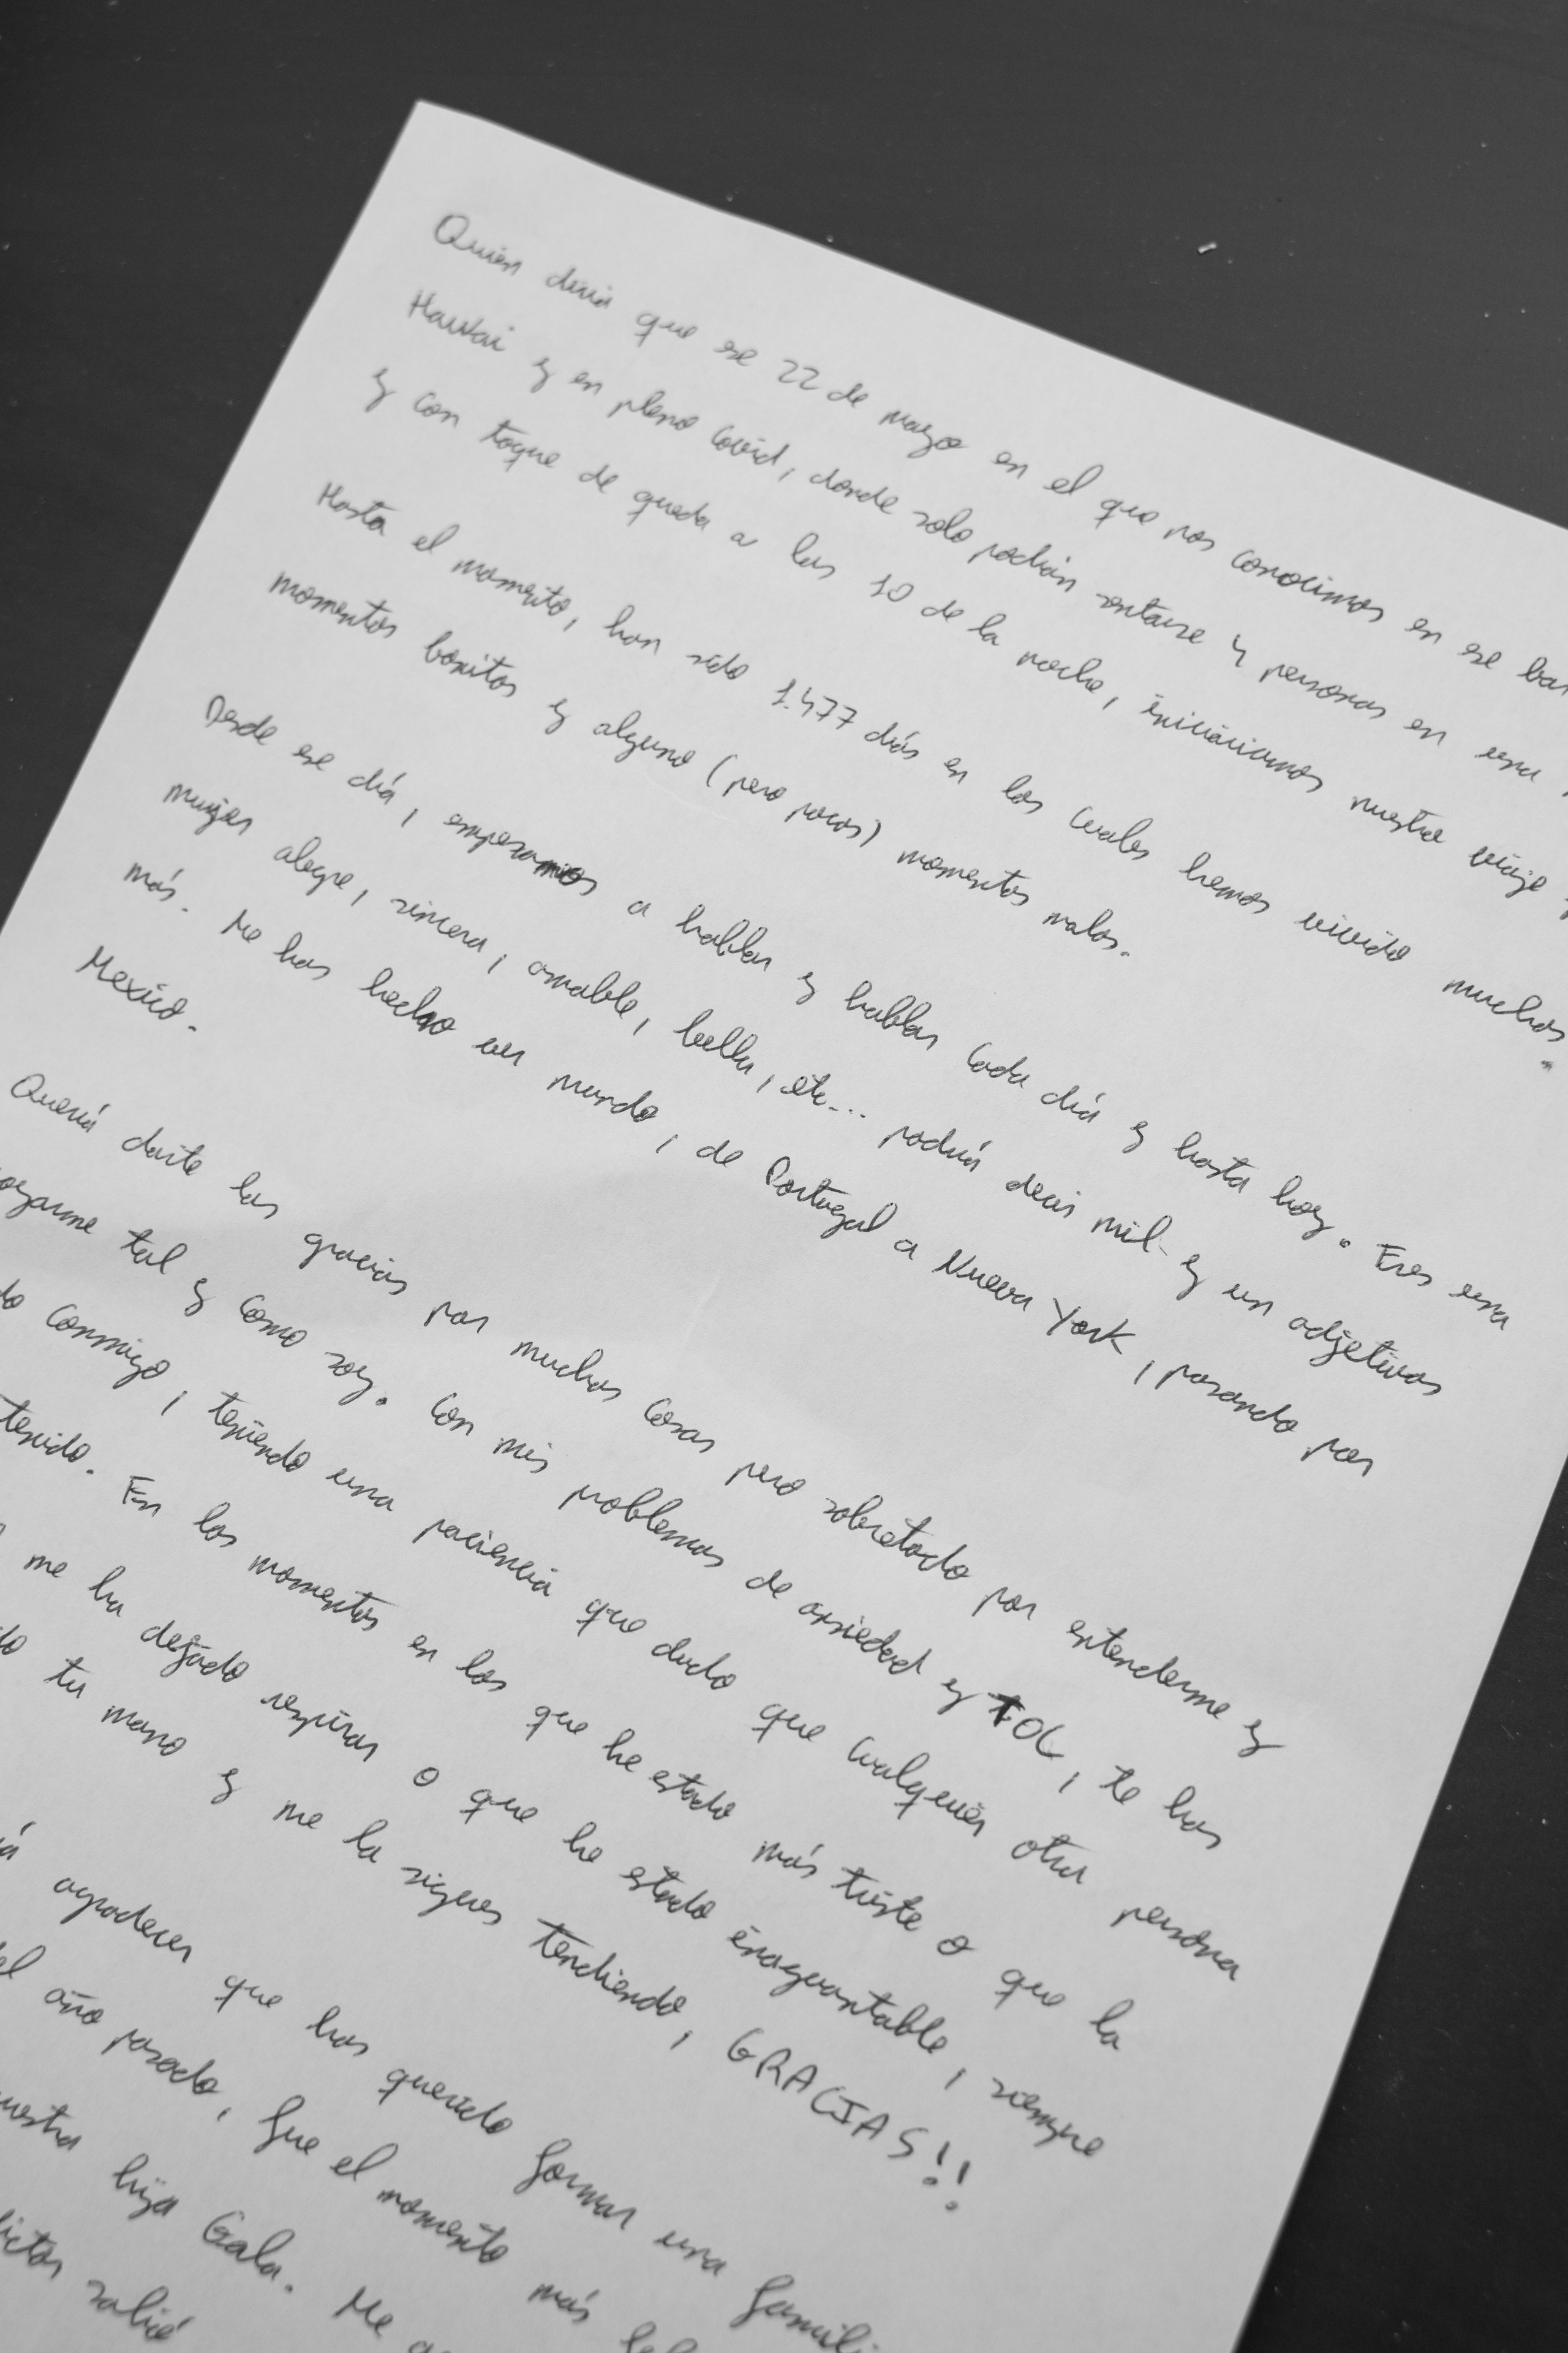 Quien diría que ese 22 de mayo en el que nos conocimos en ese bar
Hawai y en pleno covid, donde solo podían sentarse 4 personas en una
y con toque de queda a las 10 de la noche, iniciáriamos nuestro viaje
Hasta el momento, han sido 1.477 días en los cuales hemos vivido muchos
momentos bonitos y alguno (pero pocos) momentos malos.
Desde ese día, empezamos a hablar y hablar cada día y hasta hoy. Eres una
mujer alegre, sincera, amable, bella, etc... podría decir mil y un adjetivos
más. Me has hecho ver mundo, de Portugal a Nueva York, pasando por
Mexico.
Quería darte las gracias por muchas cosas pero sobretodo por entenderme y
tal y como soy. Con mis problemas de ansiedad y TOC, te has
conmigo, teniendo una paciencia que dudo que cualquier otra persona
tenido. En los momentos en los que he estado más triste o que la
me ha dejado respirar o que he estado inaguantable, siempre
tu mano y me la sigues tendiendo, GRACIAS!!
agradecer que has querido formar una
año pasado, fue el momento más
hija Gala. Me
salió